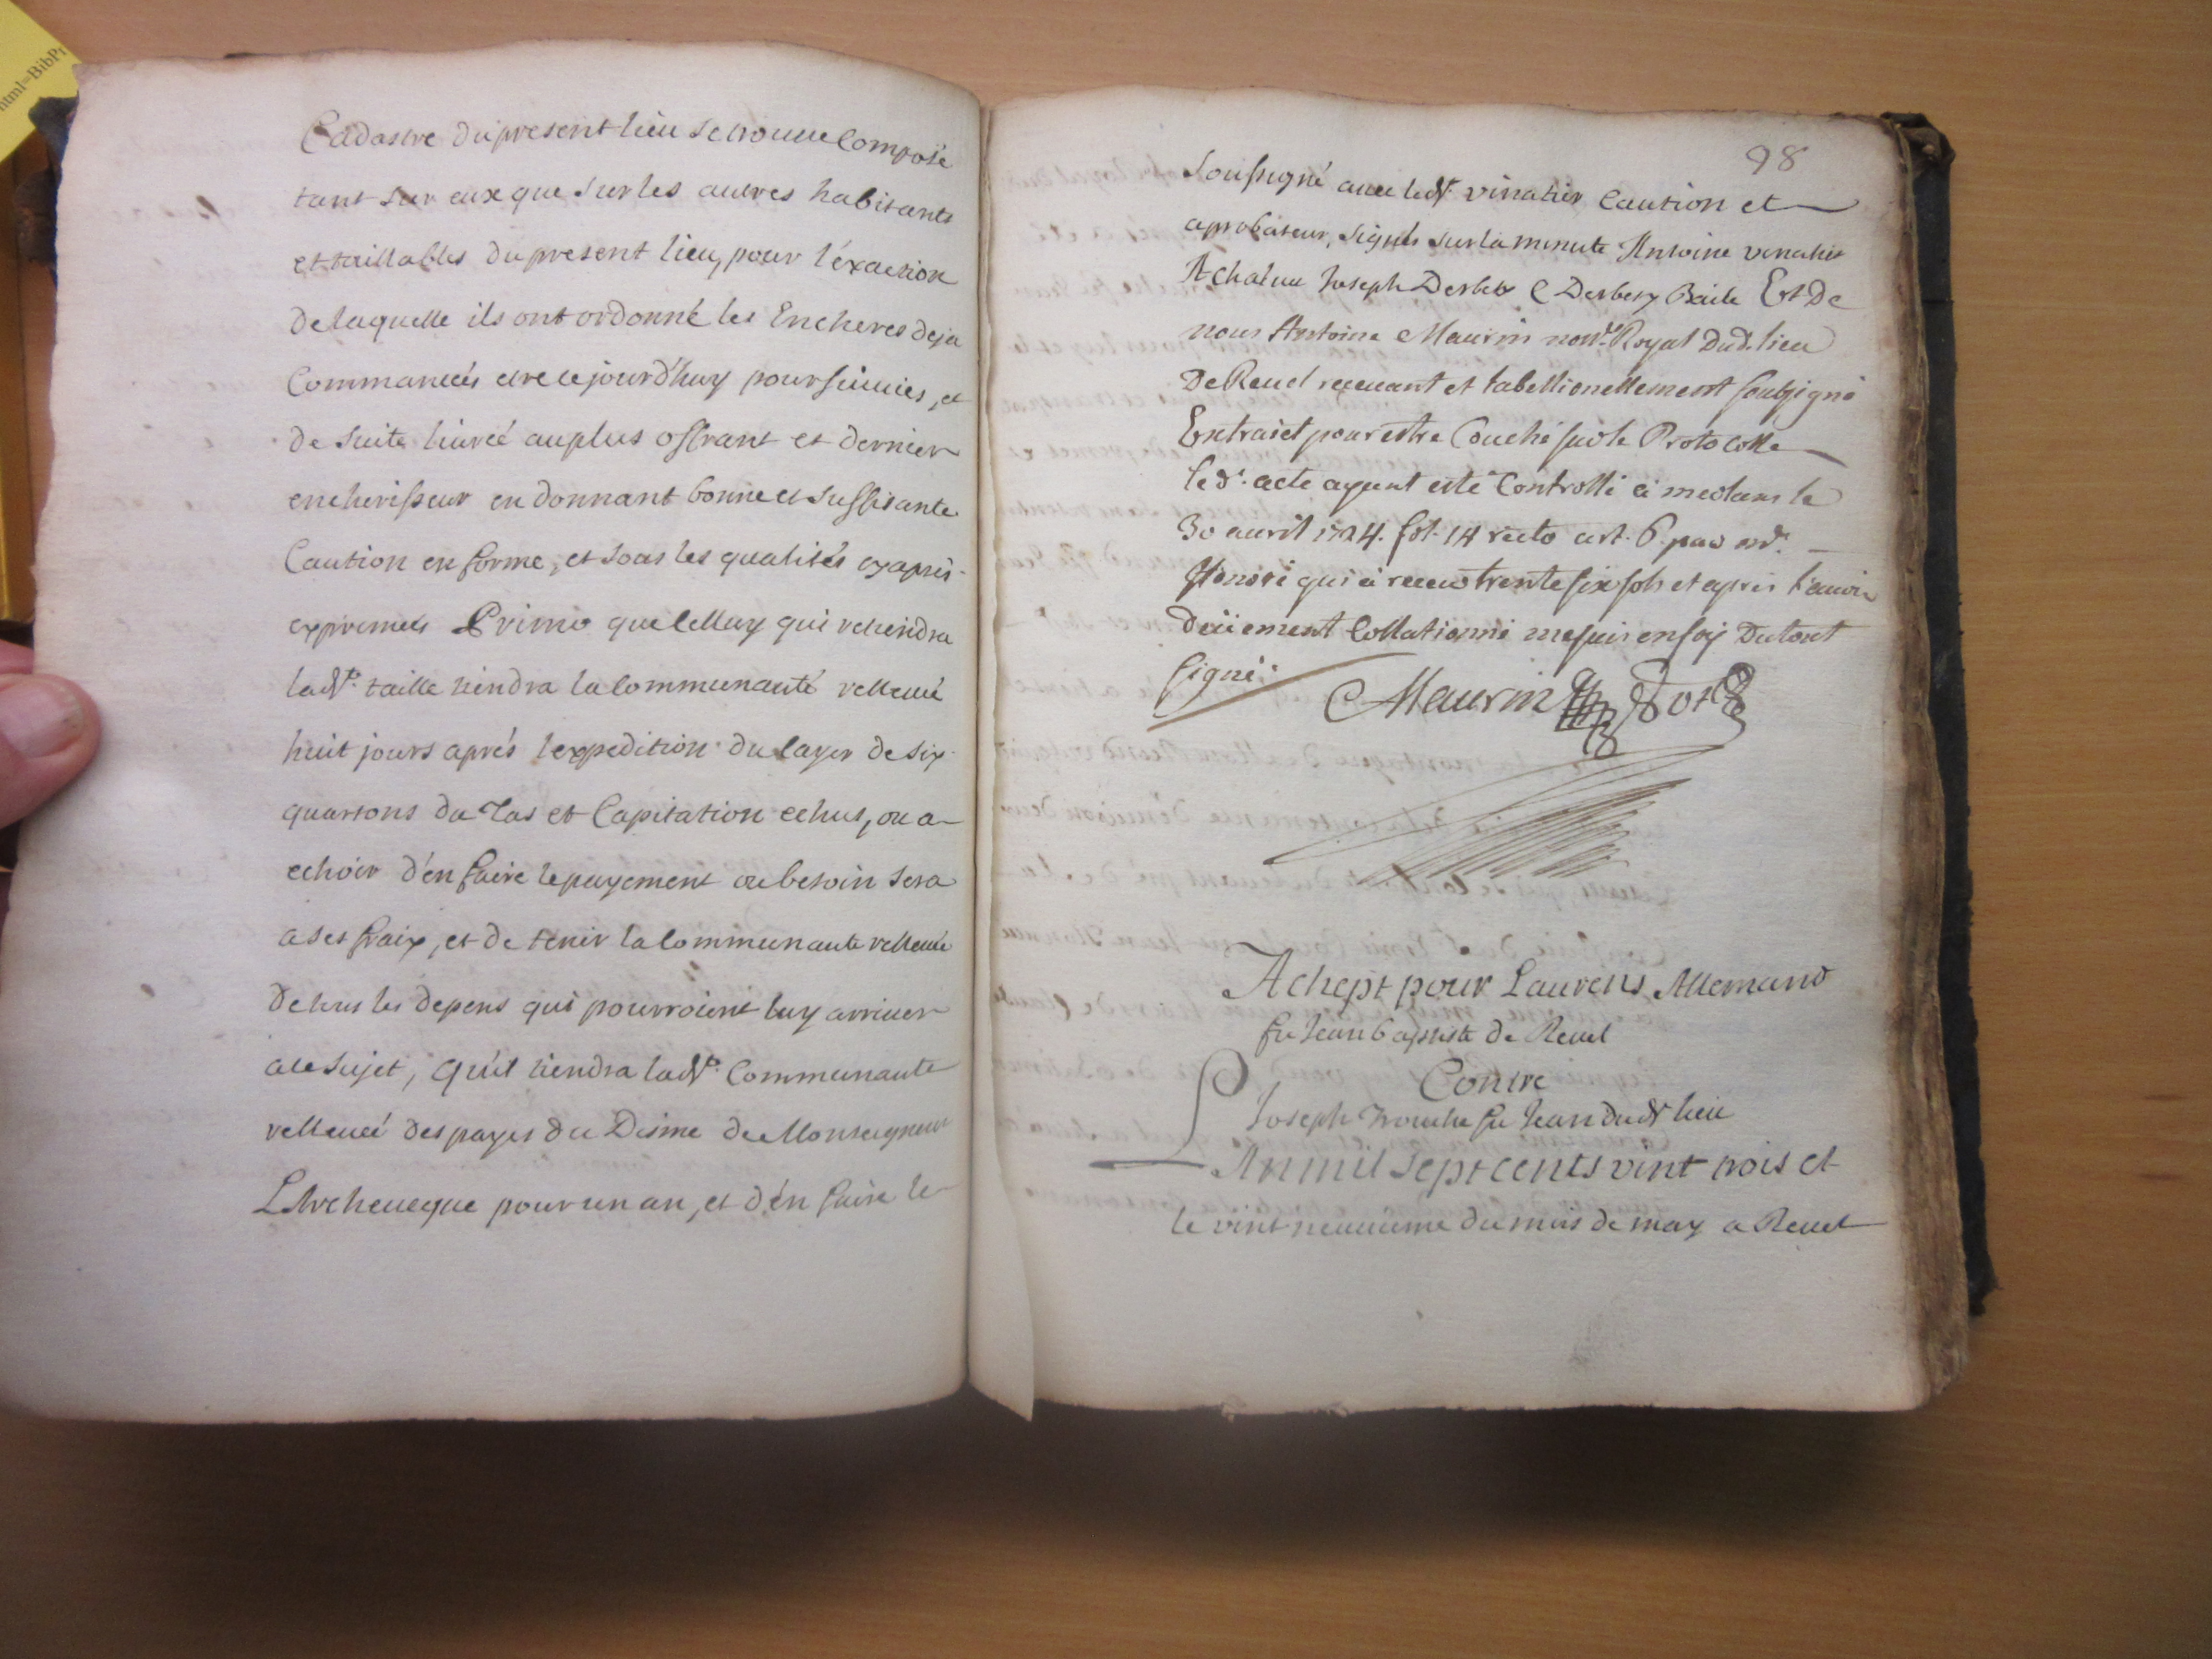 html=BibPr
Cadastre du present lieu se trouve Composé
tant sur eux que sur les autres habitants
et taillables du present lieu, pour l'éxaction
de laquelle ils ont ordonné les Encheres deja
Commancés etre cejourd'huy poursuivies, et
de suite livreé au plus offrant et dernier
encherisseur en donnant bonne et suffisante
Caution en forme, et sous les qualités cy aprés
exprimeés Primo que celluy qui retiendra
lad.te taille tiendra la Communauté relleveé
huit jours aprés l'expedition du cayer de six
quartons du Tas et Capitation echus, ou a
echoir d'en faire le payement ou besoin sera
a ses fraix, et de tenir la Communauté relleveé
de tous les depens qui pourroient luy arriver
a ce sujet, qu'il tiendra lad.te Communauté
relleveé des payes du Disme de Monseigneur
L'Archeveque pour un an, et d'en faire le
98
soussigné avec led.t vinatier Caution et
aprobateur, signés sur la minute Antoine vinatier
Joseph Derbez C Derbez Baile Et De
nous Antoine Maurin not.re Royal Dud. lieu
De Revel recevant et tabellionellement soubsigné
Extraict pour estre Couché sur le Protocolle
led. acte ayant esté Controllé à meolans le
30 avril 1724. fol. 14 recto art. 6. par mr.
Honoré qui à receu trente six sols et aprés l'avoir
Deüement Collationné me suis en foy Du tout
signé:
Maurin Not.re
Achept pour Laurens Allemand
fu Jean baptiste de Revel
Contre
Joseph Trouche fu Jean dud.t lieu
L'An mil sept cents vint trois et
le vint neuvieme du mois de may a Revel